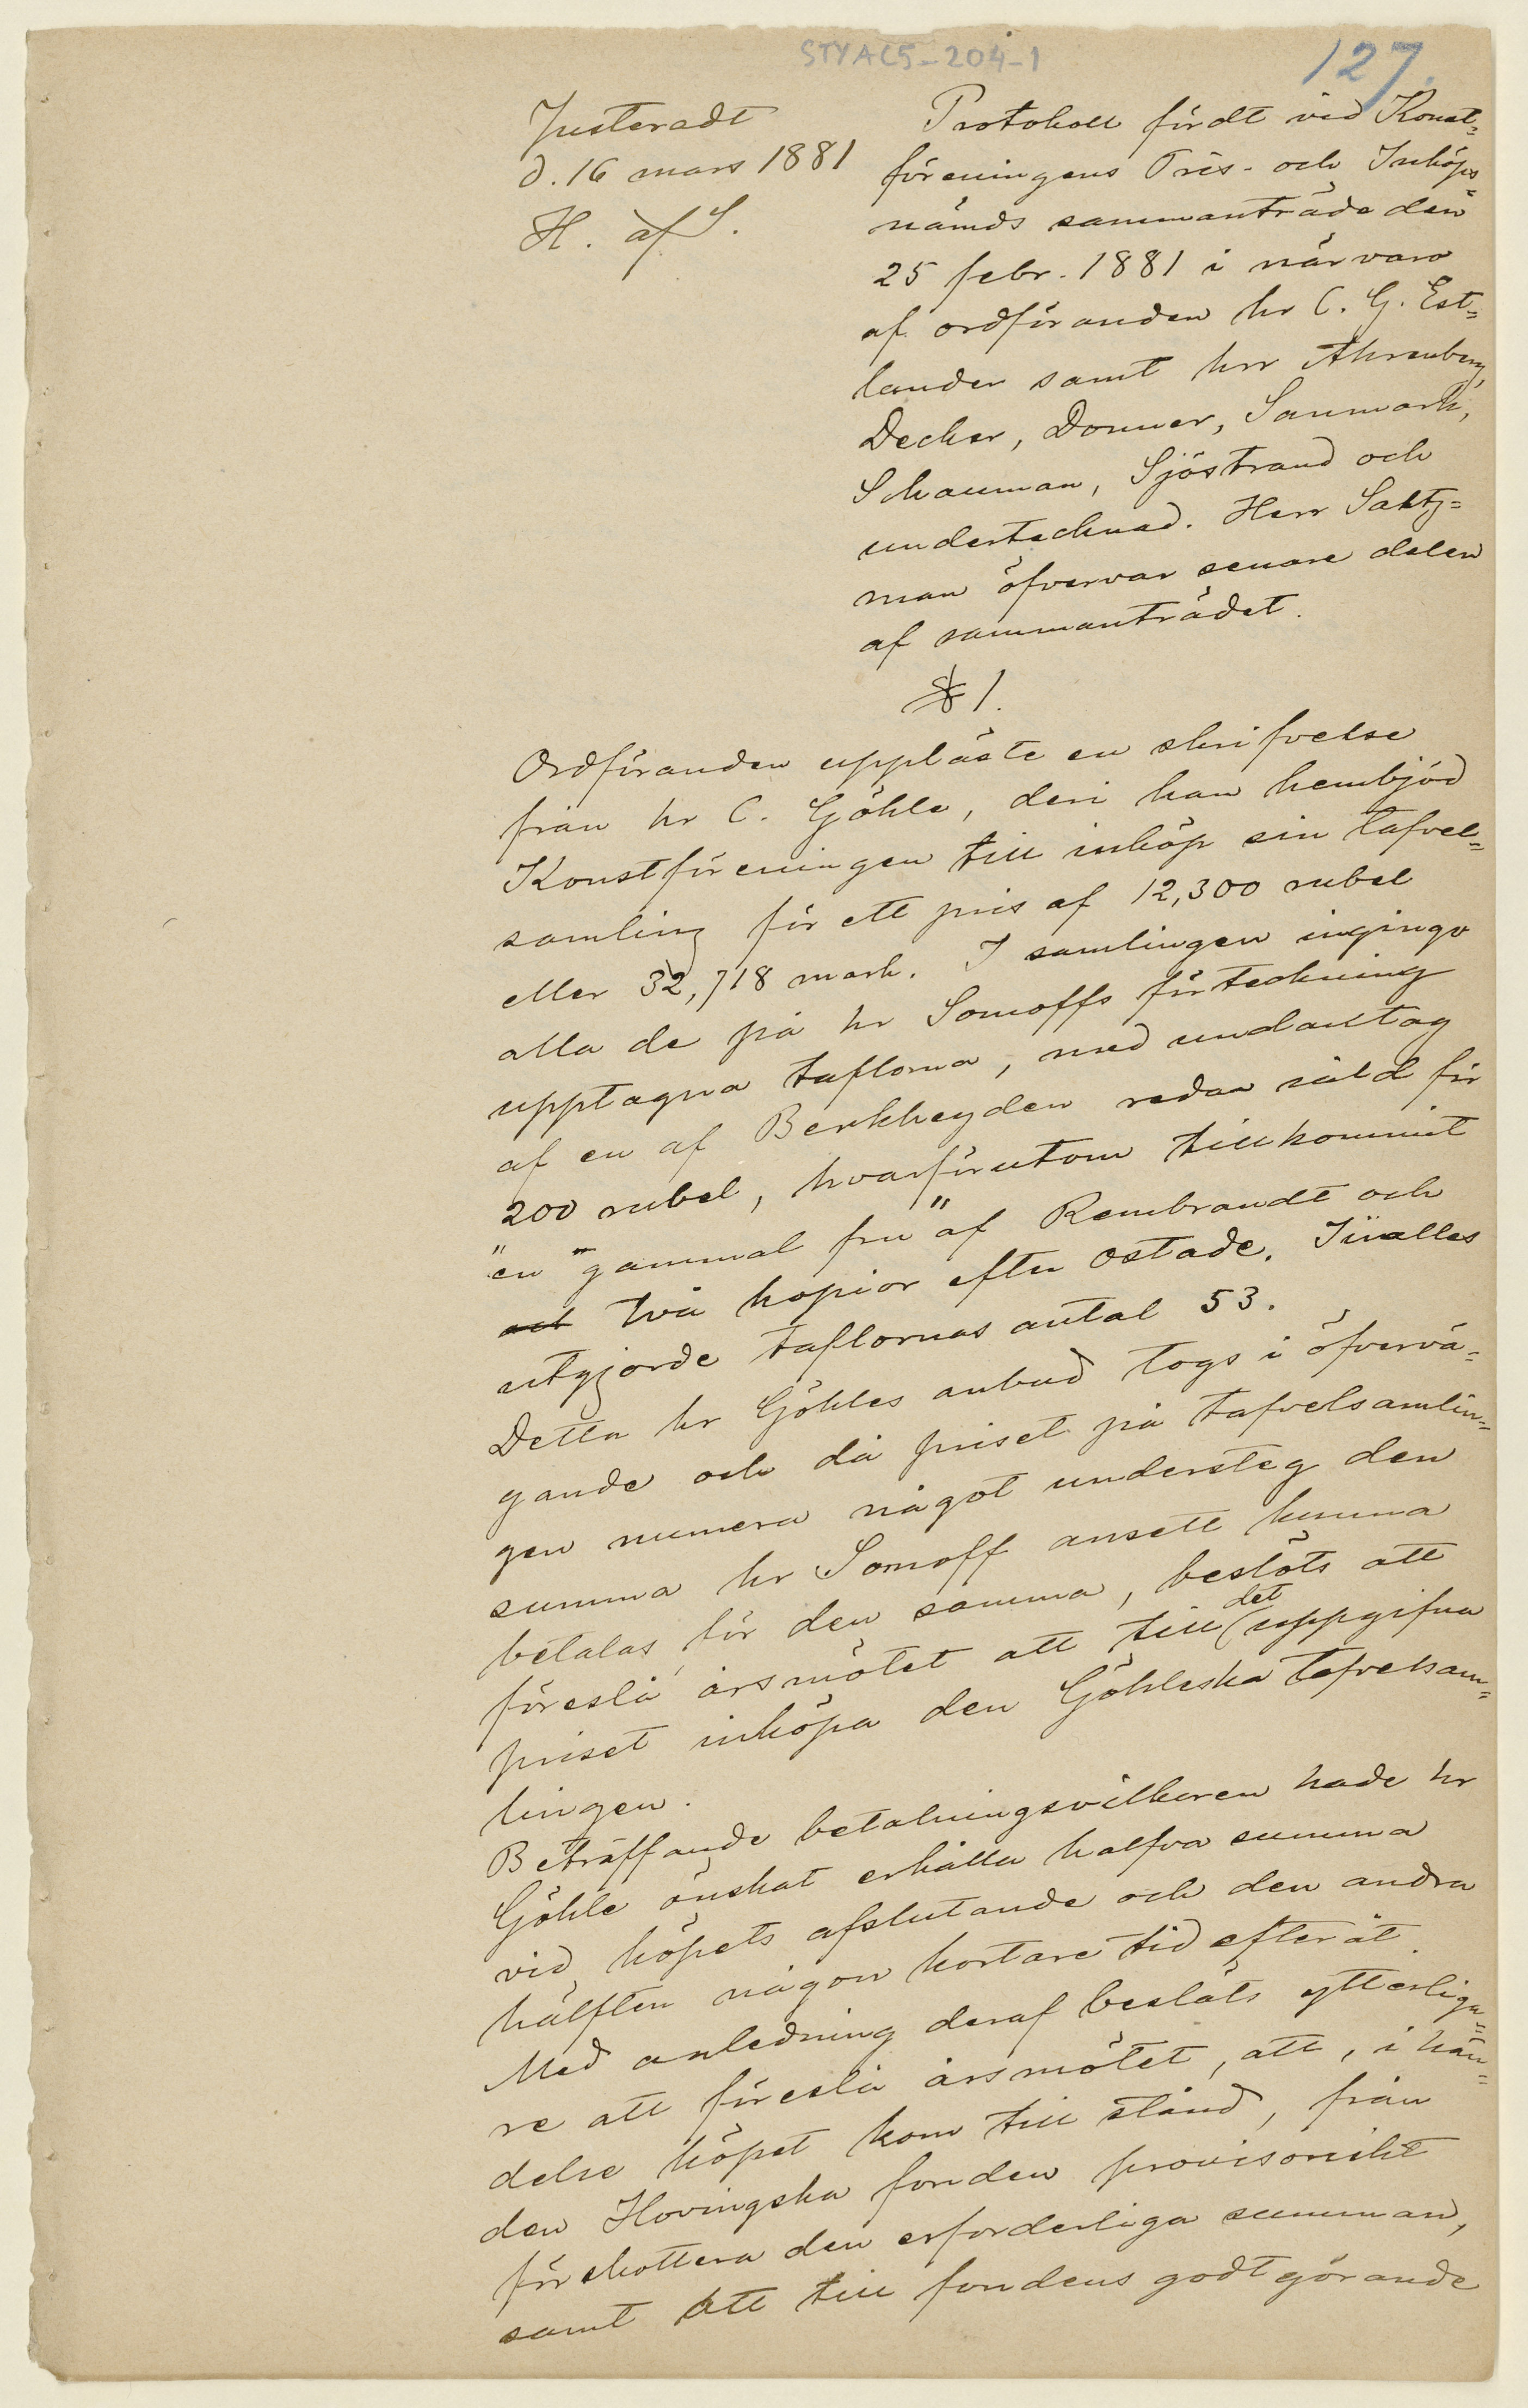 STYAC5-204-1
127.
Justeradt
d. 16 mars 1881
H. af S.
Protokoll fördt vid Konst=
föreningens Pris- och Inköps=
nämds sammanträde den
25 febr. 1881 i närvaro
af ordföranden hr C. G. Est=
lander samt hrr Ahrenberg,
Decker, Donner, Sanmark,
Schauman, Sjöstrand och
undertecknad. Herr Saltz=
man öfvervar senare delen
af sammanträdet.
§ 1.
Ordföranden uppläste en skrifvelse
från hr C. Göhle, deri han hembjöd
Konstföreningen till inköp sin tafvel=
samling för ett pris af 12,300 rubel
eller 32,718 mark. I samlingen ingingo
alla de på hr Somoffs förteckning
upptagna taflorna, med undantag
af en af Berkheyden redan såld för
200 rubel, hvarförutom tillkommit
"en "gammal fru" af Rembrandt och
och två kopior efter Ostade. Inalles
utgjorde taflornas antal 53.
Detta hr Göhles anbud togs i öfvervä=
gande och då priset på tafvelsamlin=
gen numera något understeg den
summa hr Somoff ansett kunna
betalas för den samma, beslöts att
föreslå årsmötet att till det uppgifna
priset inköpa den Göhleska tafvelsam=
lingen.
Beträffande betalningsvilkoren hade hr
Göhle önskat erhålla halfva summa
vid köpets afslutande och den andra
hälften någon kortare tid efteråt.
Med anledning deraf beslöts ytterliga=
re att föreslå årsmötet, att, i hän=
delse köpet kom till stånd, från
den Hovingska fonden provisoriskt
förskottera den erforderliga summan,
samt att till fondens godtgörande